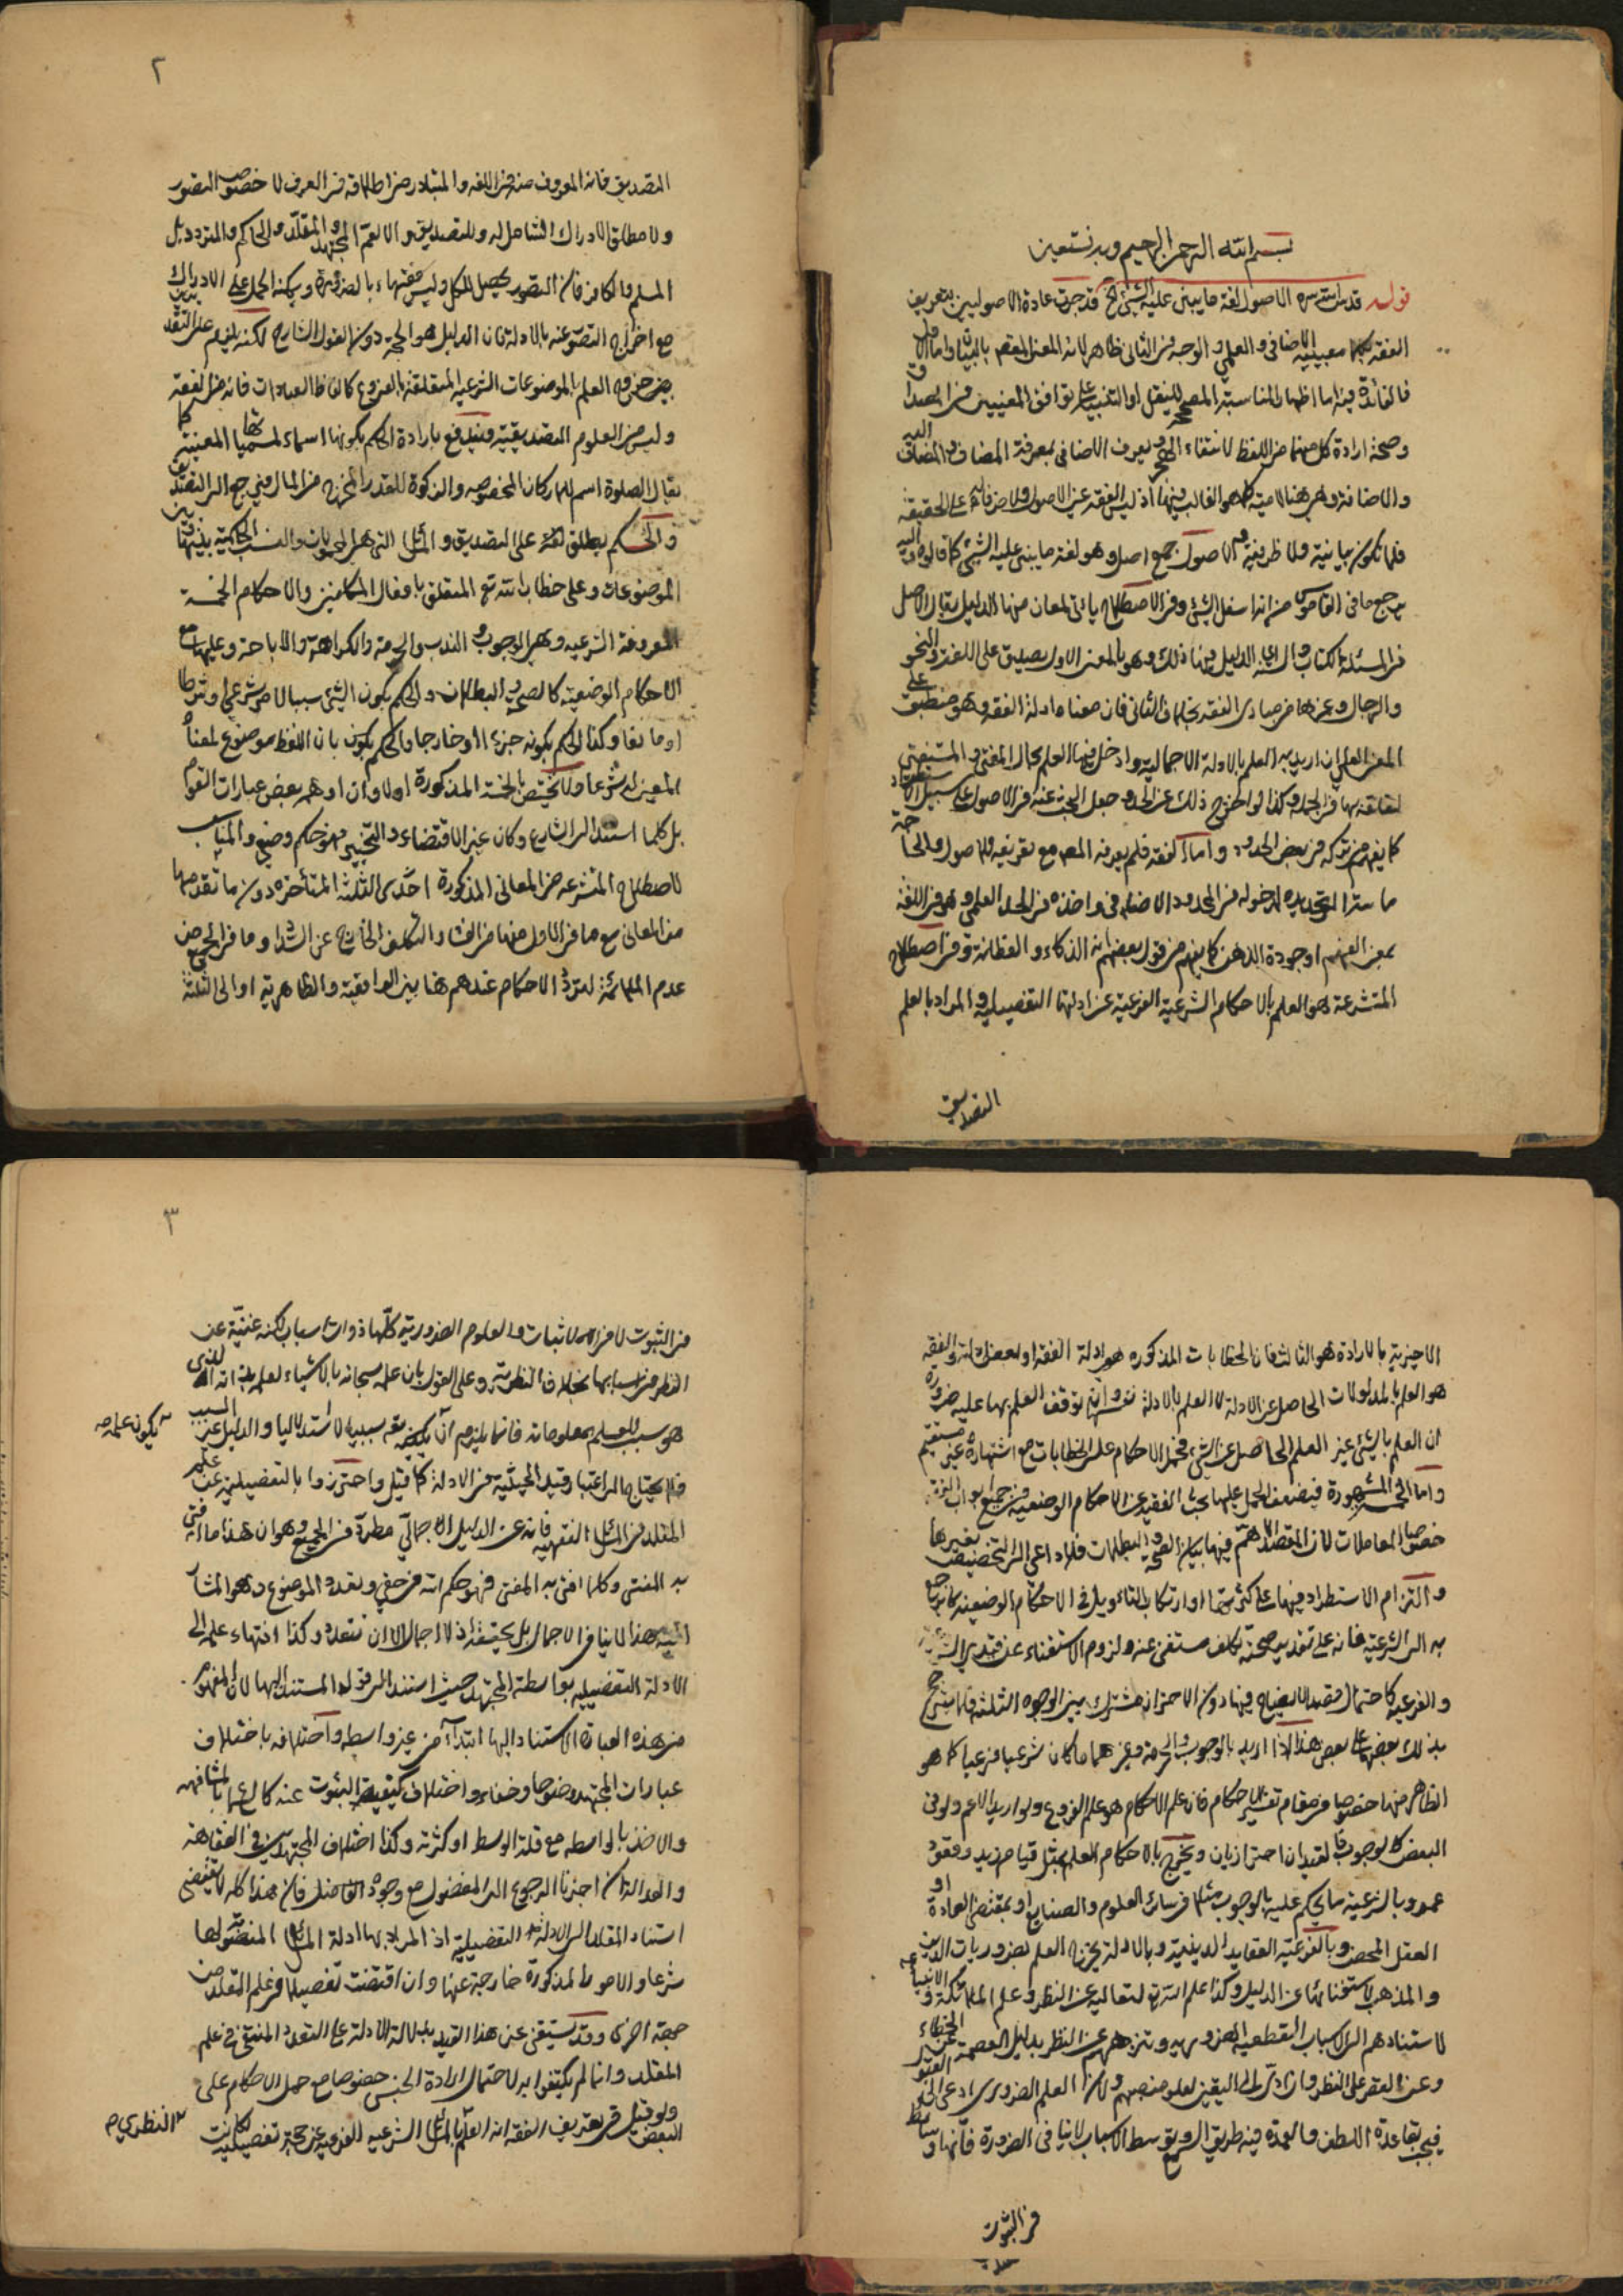 بسم الله الرحمن الرحيم وبه نستعين
قوله قدس سره الاصول لغة ما يبتنى عليه الشئ الخ قد جرت عادة الاصوليين بتعريف
الفقه بمعنييه الاضافى و العلمى و الوجه فى الثانى ظاهر لانه المعنى المهتم بالبيان واما الاول
فالفائدة فيه اما اظهار المناسبة المصححة للنقل او التنبيه على توافق المعنيين فى المصداق
وصحة ارادة كل منهما من اللفظ لانتفاء الحجر ويعرف الاضافى بمعرفة المضاف والمضاف اليه
والاضافة وهى هنا لامية كما هو الغالب فيها اذ ليس الفقه عين الاصول ولا ظرفا له على الحقيقة
فلا تكون بيانية ولا ظرفية والاصول جمع اصل وهو لغة ما يبنى عليه الشئ كما قالوه واليه
يرجع ما فى القاموس من انه اسفل الشئ وفى الاصطلاح ياتى لمعان منها الدليل يقال الاصل
فى المسئلة الكتاب والسنة اى الدليل فيها ذلك وهو بالمعنى الاول يصدق على اللغة والنحو
والرجال وغيرها من مبادى الفقه بخلاف الثانى فان معناه ادلة الفقه وهو منطبق على
المعنى العلمى ان اريد به العلم بالادلة الاجمالية وادخل فيها العلم بحال المفتى و المستفتى
لتعلقه بها فى الجملة وكذا لو اخرج ذلك عن الحد وجعل البحث عنه فى الاصول على سبيل الاستطراد
كما يفهم من تركه فى بعض الحدود واما الفقه فلم يعرفه المصنف مع تعريفه للاصول والحاجة
ماسة الى تحديده لدخوله فى المحدود الاضافى واخذه فى الحد العلمى وهو فى اللغة
بمعنى الفهم او جودة الذهن كما يفهم من قول بعضهم انه الذكاء و الفطانة وفى اصطلاح
المتشرعة هو العلم بالاحكام الشرعية الفرعية عن ادلتها التفصيلية والمراد بالعلم
التصديق
٢
التصديق فانه المعروف منه فى اللغة والمتبادر من اطلاقه فى العرف لا خصوص التصور
ولا مطلق الادراك الشامل له وللتصديق والا لعم المجتهد والمقلد والحاكم والمتردد بل
المسلم والكافر فان التصور يحصل للكل وليس فقها بالضرورة ويمكن الحمل على الادراك
مع اخراج التصور عنه بالادلة فان الدليل هو الحجة دون القول الشارح لكنه يلزم على التقديرين
خروج العلم بالموضوعات الشرعية المتعلقة بالفروع كالفاظ العبادات فانه من الفقه
وليس من العلوم التصديقية ويندفع بارادة الحكم بكونها اسماء لمسمياتها المعينة كما
يقال الصلوة اسم للاركان المخصوصة والزكوة للقدر المخرج من المال فيرجع الى التصديق
والحكم يطلق لغة على التصديق و المسائل التى هى المحمولات والنسب الحكمية بينها وبين
الموضوعات وعلى خطاب الله تع المتعلق بافعال المكلفين والاحكام الخمسة
المعروفة الشرعية وهى الوجوب والندب والحرمة والكراهة والاباحة وعليها مع
الاحكام الوضعية كالصحة والبطلان والحكم بكون الشئ سببا لامر شرعى او شرطا
او مانعا وكذا الحكم بكونه جزءا او خارجا والحكم بكون بان اللفظ موضوع لمعناه
المعين له شرعا ولا يختص بالخمسة المذكورة اولا وان اوهمه بعض عبارات القوم
بل كلما استند الى الشارع وكان غير الاقتضاء والتخيير فهو حكم وضعى والمناسب
لاصطلاح المتشرعة من المعانى المذكورة احدى الثلثة المتأخرة دون ما تقدمها
من المعانى مع ما فى الاول منها من الفساد والتكلف الخارج عن السداد وما فى الجميع من
عدم الملائمة لتردد الاحكام عندهم هنا بين الواقعية والظاهرية او الى الثلثة
الاخيرية بالارادة هو الثالث فان الخطابات المذكورة هى ادلة الفقه او بعض ادلته والفقه
هو العلم بالمدلولات الحاصل عن الادلة لا العلم بالادلة نفسها وان توقف العلم بها عليه ضرورة
ان العلم بالشئ غير العلم الحاصل عن الشئ فحمل الاحكام على الخطابات مع اشتهاره غير مستقيم
واما الخمسة المشهورة فيضعف الحمل عليها بحث الفقيه عن الاحكام الوضعية فى جميع ابواب الفقه
خصوصا المعاملات لان المقصد الاهم فيها بيان الصحة والبطلان فلا داعى الى التخصيص بغيرها
والتزام الاستطراد فيها على كثرتها او ارتكاب التاويل فى الاحكام الوضعية كما ترجع
به الى الشرعية فانه على تقدير صحته تكلف مستغنى عنه ولزوم الاستغناء عن قيدى الشرعية
والفرعية كاحتمال قصد الايضاح فيها دون الاحتراز مشترك بين الوجوه الثلثة فلا يترجح
بذلك بعضها على بعض هذا اذا اريد بالوجوب والحرمة وغيرهما ما كان شرعيا فرعيا كما هو
الظاهر منها خصوصا فى مقام تفسير الاحكام فان علم الاحكام هو علم الفروع ولو اريد الاعم ولو فى
البعض كالوجوب فالقيدان احترازيان ويخرج بالاحكام العلم بمثل قيام زيد وقعود
عمرو وبالشرعية ما يحكم عليه بالوجوب مثلا فى سائر العلوم والصنايع او بمقتضى العادة او
العقل المحض وبالفرعية العقايد الدينية وبالادلة يخرج العلم بضروريات الدين
والمذهب لاستغنائها عن الدليل وكذا علم الله تع لتعاليه عن النظر وعلم الملائكة والانبياء
لاستنادهم الى الاسباب القطعية الضرورية وتنزههم عن النظر بدليل العصمة عن الخطاء
وعن القصر على النظر وان ادى الى اليقين لعلو منصبهم ولان العلم الضرورى ادعى الى القبول
فيجب بقاعدة اللطف والعمدة فيه طريق السمع وتوسط الاسباب لا ينافى الضرورة فانها وسايط
فى الثبوت
٣
فى الثبوت لا فى الاثبات والعلوم الضرورية كلها ذوات اسباب لكنه غنية عن
النظر فى اسبابها بخلاف النظرية وعلى القول بان علمه سبحانه بالاشياء لعلمه بذاته الذى
هو سبب للعلم بمعلوماته فانما يلزم ان يكون علمه سببيا لا استدلاليا والدليل غير السبب
يكون علمه صح
فلا يحتاج الى اعتبار قيد الحيثية فى الادلة كما قيل واحترزوا بالتفصيلية عن علم
المقلد فى المسائل الفقهية فانه عن الدليل الاجمالى مطرد فى الجميع وهو ان هذا ما افتى
به المفتى وكلما افتى به المفتى فهو حكم الله فى حقى وتعدد الموضوع وهو المشار
اليه بهذا لا ينافى الاجمال بل يحققه اذ لا اجمال الا ان تتعدد وكذا انتهاء علمه الى
الادلة التفصيلية بواسطة المجتهد حيث استند الى قوله المستند اليها لان المفهوم
من هذه العبارة الاستناد اليها ابتداء من غير واسطة واختلافه باختلاف
عبارات المجتهد وضوحا وخفاء واختلاف كيفية الثبوت عنه كالسماع بالمشافهة
والاخذ بالواسطة مع قلة الوسط او كثرته وكذا اختلاف المجتهدين فى الفقاهة
والعدالة ان اجزنا الرجوع الى المفضول مع وجود الفاضل فان هذا كله لا يقتضى
استناد المقلد الى الادلة التفصيلية اذ المراد بها ادلة المسائل المنصوبة لها
شرعا والامور المذكورة خارجة عنها وان اقتضت تفصيلا فى علم المقلد من
جهة اخرى وقد يستغنى عن هذا القيد بدلالة الادلة على التعدد المنتفى فى علم
المقلد وانما لم يكتفوا به لاحتمال ارادة الجنس خصوصا مع حمل الاحكام على
البعض ولو قيل فى تعريف الفقه انه العلم بالمسائل الشرعية الفرعية عن حجة تفصيلية لكانت
النظرى صح